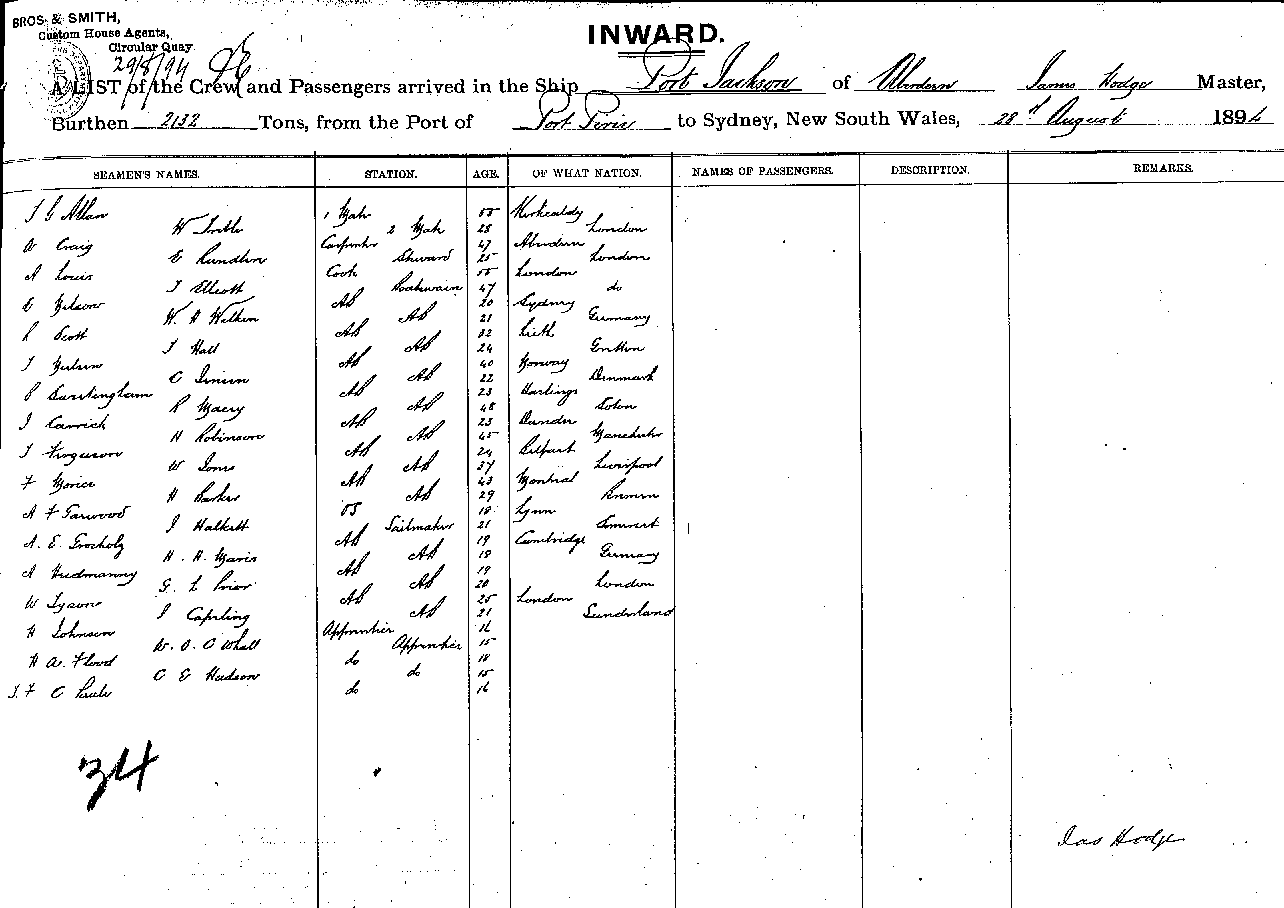 BROS. & SMITH,
Custom House Agents,
Circular Quay.
29/8/94
INWARD.
A LIST of the Crew and Passengers arrived in the Ship Port Jackson of Aberdeen James Hodge Master,
Burthen 2132 Tons, from the Port of Port Pirie to Sydney, New South Wales, 28th August 1894
SEAMEN'S NAMES. STATION. AGE. OF WHAT NATION. NAMES OF PASSENGERS. DESCRIPTION. REMARKS.
J G Allan 1 Mate 55 Kirkcaldy
W 2 Mate 28 London
A Craig Carpenter 47 Aberdeen
E Rundlen Steward 25 London
A Louis Cook 55 London
J Ellcott Boatswain 47 do
E Nelson AB 20 Sydney
W. H Wilken AB 21 Germany
R Scott AB 32 Leith
J Hall AB 24
J AB 40 Norway
C Jensen AB 22 Denmark
P AB 23 Hastings
R AB 48
J Carrick AB 23 Dundee
H Robinson AB 45 Manchester
J Ferguson AB 24 Belfast
W Jones AB 37 Liverpool
F AB 43 Montreal
H Barker AB 29
A F Garwood OS 18 Lynn
J Halkett Sailmaker 21
A. E. Grocholz AB 19 Cambridge
H. H. AB 18 Germany
A AB 19
G. L Prior AB 20 London
W Tysons AB 25 London
J AB 21 Sunderland
H Johnson Apprentice 16
W. O. C Whall Apprentice 15
H A. Flood do 18
C E Hudson do 15
J. F C do 16
34
Jas Hodge